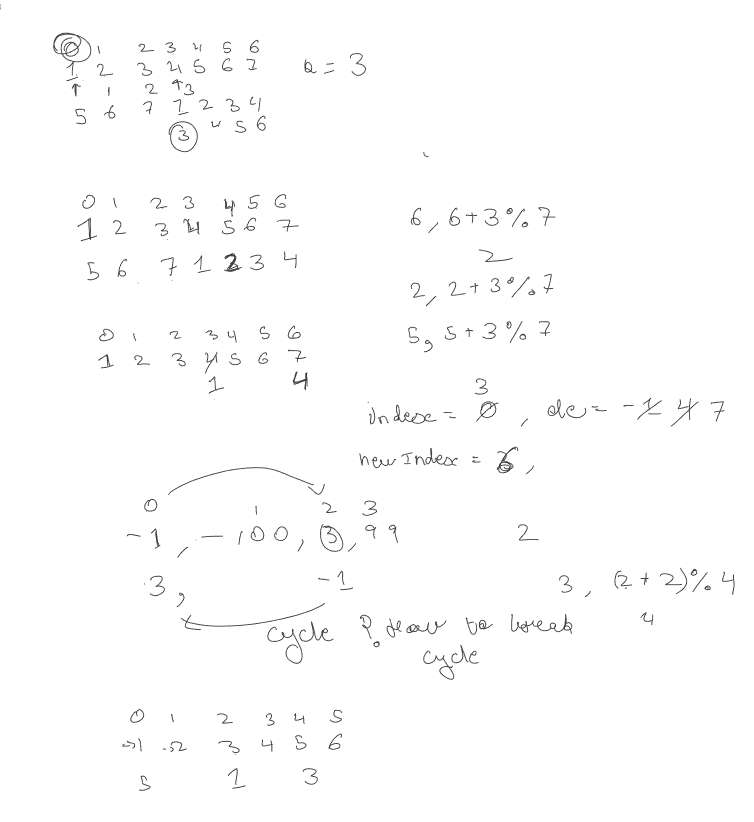 0 1 2 3 4 5 6
1 2 3 4 5 6 7 k = 3
↑ 1 2 ↑3
5 6 7 1 2 3 4
3 4 5 6
0 1 2 3 4 5 6
1 2 3 4 5 6 7
5 6 7 1 2 3 4
6, 6+3%7
2
2, 2+3%7
5, 5+3%7
0 1 2 3 4 5 6
1 2 3 4 5 6 7
1 4
3
index = 0, = -1 4 7
newIndex = 6,
0 1 2 3
-1, -100, 3, 99
2
3, -1
3, (2+2)%4
4
cycle ? How to break
cycle
0 1 2 3 4 5
1 2 3 4 5 6
5 1 3